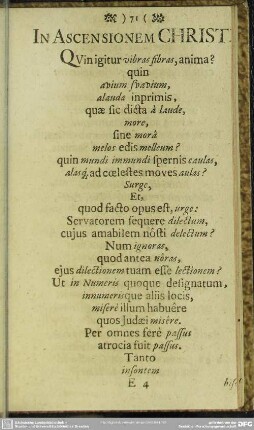 ) 71 (
IN ASCENSIONEM CHRISTI
QVin igitur vibras fibras, anima?
quin
avium svavium,
alauda inprimis,
quæ sic dicta à laude,
more,
sine morâ
melos edis melleum?
quin mundi immundi spernis caulas,
alasq; ad cœlestes moves aulas?
Surge,
Et,
quod facto opus est, urge:
Servatorem sequere dilectum,
cujus amabilem nôsti delectum?
Num ignoras,
quod antea nôras,
ejus dilectionem tuam esse lectionem?
Ut in Numeris quoque designatum,
innumerisque aliis locis,
miserè illum habuêre
quos Judæi misêre.
Per omnes ferè passus
atrocia fuit passus.
Tanto
insontem
E 4